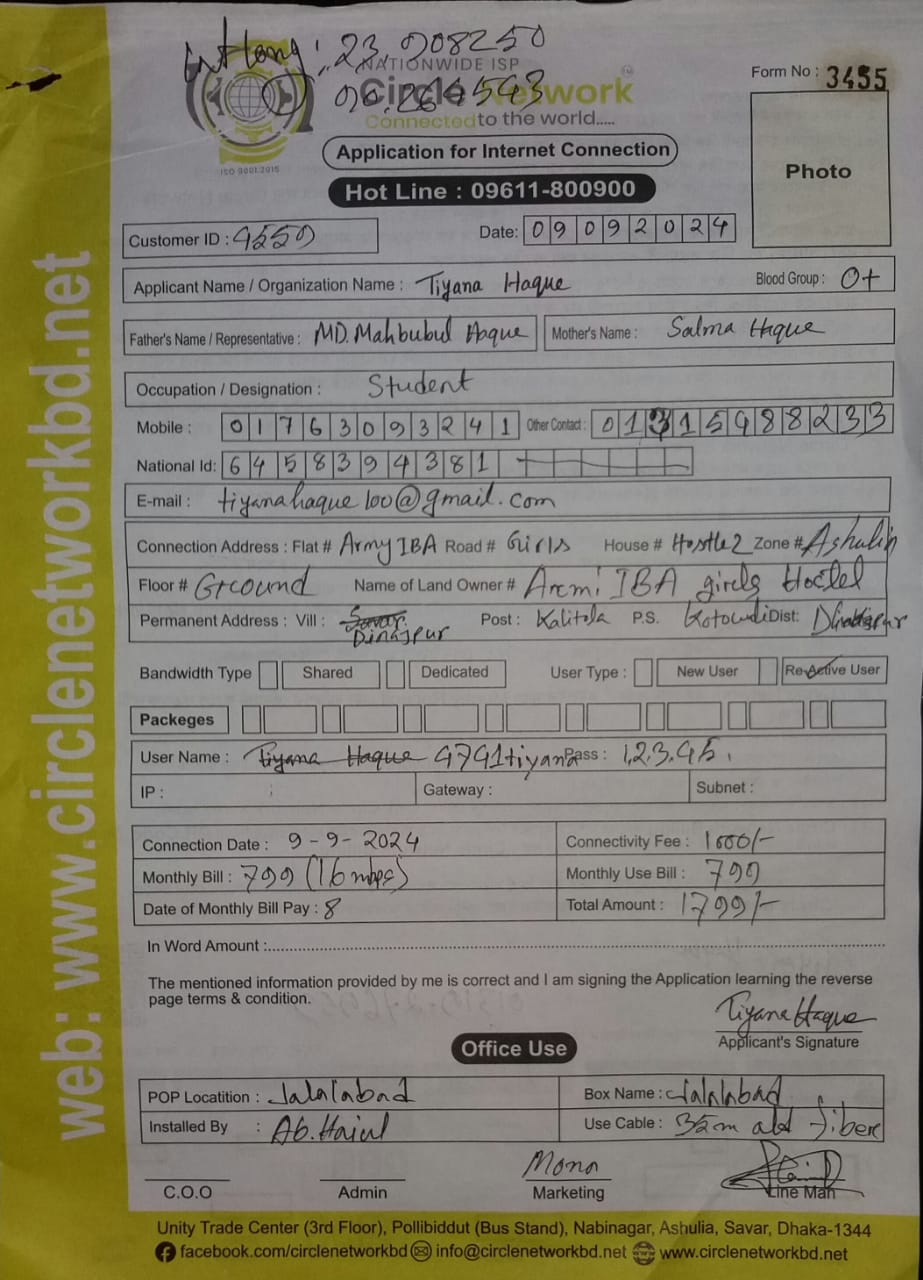 23.908250
NATIONWIDE ISP
Circle Network
Connected to the world.....
ISO 9001:2015
Form No : 3455
Photo
Application for Internet Connection
Hot Line : 09611-800900
Customer ID : 4550
Date: 09092024
Applicant Name / Organization Name : Tiyana Haque
Blood Group : O+
Father's Name / Representative : MD. Mahbubul Haque
Mother's Name : Salma Haque
Occupation / Designation : Student
Mobile : 01763093241 Other Contact :
National Id: 6458394381
E-mail : tiyanahaque100@gmail.com
Connection Address : Flat # Army IBA Road # Girls House # Hostle 2 Zone #
Floor # Grcound Name of Land Owner # IBA Hostel
Permanent Address : Vill : Savar Dinajpur Post : Kalitola P.S. Dist:
Bandwidth Type Shared Dedicated User Type : New User Re-Active User
Packeges
User Name : Tiyana Haque 4741tiyana Pass : 1,2,3,45.
IP : Gateway : Subnet :
Connection Date : 9-9-2024 Connectivity Fee : 1000/-
Monthly Bill : 799 (16 mbps) Monthly Use Bill : 799
Date of Monthly Bill Pay : 8 Total Amount : 1799/-
In Word Amount :
The mentioned information provided by me is correct and I am signing the Application learning the reverse
page terms & condition.
Tiyana Haque
Applicant's Signature
Office Use
POP Locatition : Jalalabad Box Name : Jalalabad
Installed By : Use Cable : fiber
Mono
C.O.O Admin Marketing Line Man
Unity Trade Center (3rd Floor), Pollibiddut (Bus Stand), Nabinagar, Ashulia, Savar, Dhaka-1344
facebook.com/circlenetworkbd info@circlenetworkbd.net www.circlenetworkbd.net
web: www.circlenetworkbd.net